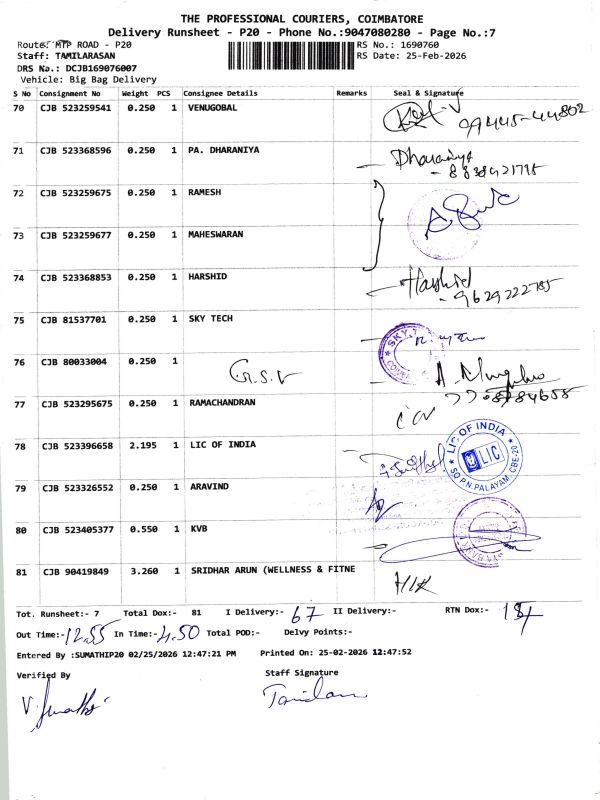 THE PROFESSIONAL COURIERS, COIMBATORE
Delivery Runsheet - P20 - Phone No.:9047080280 - Page No.:7
Route: MTP ROAD - P20
RS No.: 1690760
Staff: TAMILARASAN
RS Date: 25-Feb-2026
DRS No.: DCJB169076007
Vehicle: Big Bag Delivery
S No Consignment No Weight PCS Consignee Details Remarks Seal & Signature
70 CJB 523259541 0.250 1 VENUGOBAL
99445-44802
71 CJB 523368596 0.250 1 PA. DHARANIYA Dharaniya
72 CJB 523259675 0.250 1 RAMESH
73 CJB 523259677 0.250 1 MAHESWARAN
74 CJB 523368853 0.250 1 HARSHID Harshid
75 CJB 81537701 0.250 1 SKY TECH
SKY
76 CJB 80033004 0.250 1
G.S.V
77 CJB 523295675 0.250 1 RAMACHANDRAN
78 CJB 523396658 2.195 1 LIC OF INDIA
LIC OF INDIA
LIC
SO P.N.PALAYAM, CBE-20
79 CJB 523326552 0.250 1 ARAVIND
80 CJB 523405377 0.550 1 KVB
81 CJB 90419849 3.260 1 SRIDHAR ARUN (WELLNESS & FITNE
Tot. Runsheet:- 7 Total Dox:- 81 I Delivery:- 67 II Delivery:- RTN Dox:-
Out Time:- 12.55 In Time:- 4.50 Total POD:- Delvy Points:-
Entered By :SUMATHIP20 02/25/2026 12:47:21 PM Printed On: 25-02-2026 12:47:52
Verified By Staff Signature